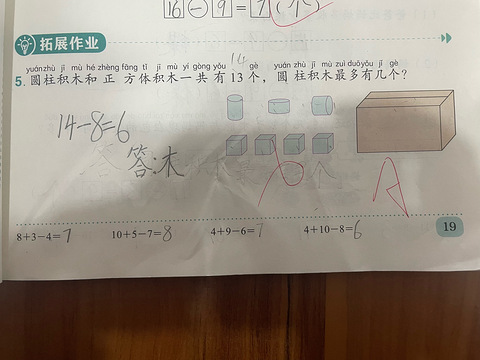 16－9＝7（个）
拓展作业
yuánzhù jī mù hé zhèng fāng tǐ jī mù yí gòng yǒu gè yuán zhù jī mù zuì duō yǒu jǐ gè
14
5. 圆柱积木和正方体积木一共有13个，圆柱积木最多有几个？
14-8=6
答:木
6 个
8+3-4=7 10+5-7=8 4+9-6=7 4+10-8=6
19